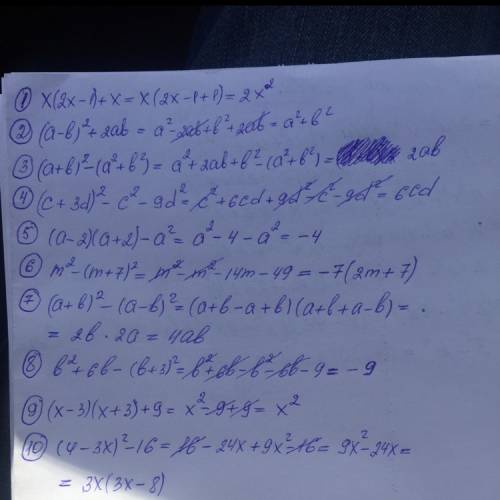 ① x(2x-1)+x = x(2x-1+1) = 2x²
② (a-b)²+2ab = a²-2ab+b²+2ab = a²+b²
③ (a+b)²-(a²+b²) = a²+2ab+b²-(a²+b²) = 2ab
④ (c+3d)²-c²-9d² = c²+6cd+9d²-c²-9d² = 6cd
⑤ (a-2)(a+2)-a² = a²-4-a² = -4
⑥ m²-(m+7)² = m²-m²-14m-49 = -7(2m+7)
⑦ (a+b)²-(a-b)² = (a+b-a+b)(a+b+a-b) =
= 2b·2a = 4ab
⑧ b²+6b-(b+3)² = b²+6b-b²-6b-9 = -9
⑨ (x-3)(x+3)+9 = x²-9+9 = x²
⑩ (4-3x)²-16 = 16-24x+9x²-16 = 9x²-24x =
= 3x(3x-8)